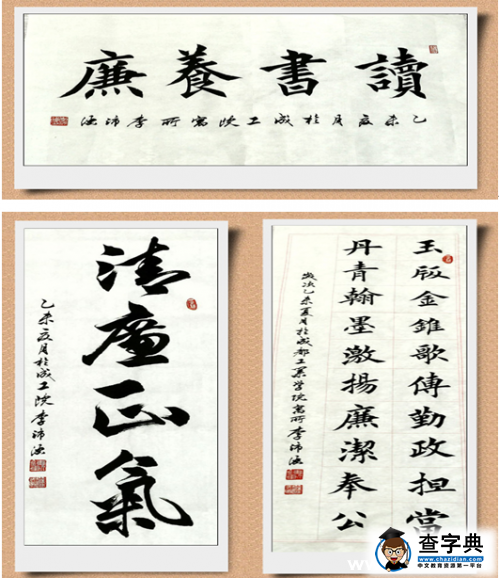 讀書養廉
乙未夏月於成工院寓所李沛
清廉正氣
乙未夏月於成工院李沛
玉版金錐歌傳勤政担當
丹青翰墨激揚廉潔奉公
歲次乙未夏月於成都工業學院寓所李沛
查字典
chazidian.com
中文教育资源第一平台